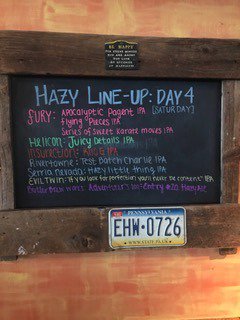 BE HAPPY
HAZY LINE-UP: DAY 4
FURY: Apocalyptic Pagent IPA [SATURDAY]
Flying Pieces IPA
Series of Sweet Karate moves IPA
Helicon: Juicy Details IPA
Insurection: IPA
Rivertowne: Test Batch Charlie IPA
Serria Navada: Hazy little thing IPA
EVIL TWIN: If you look for perfection you'll never be content" IPA
Entry #20 Hazy ALE
PENNSYLVANIA
EHW-0726
WWW.STATE.PA.US